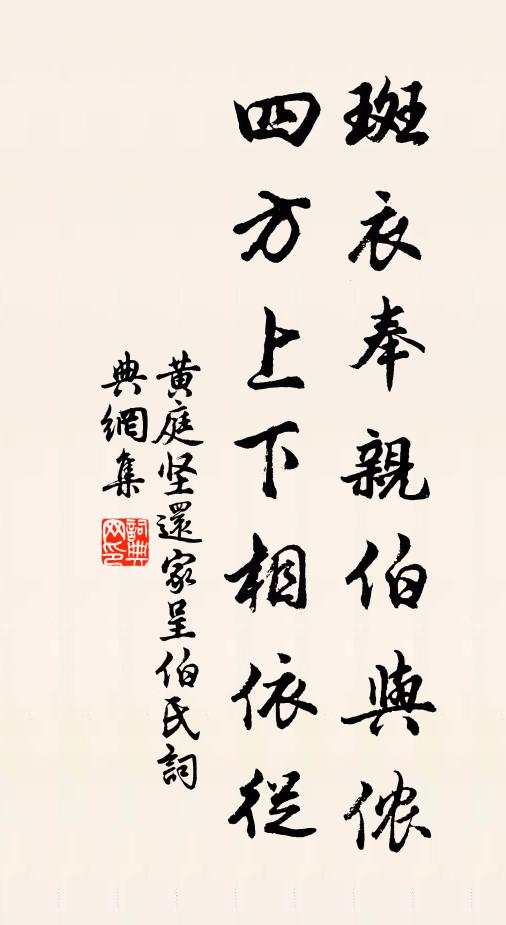 斑衣奉親伯與侬
四方上下相依從
黄庭坚還家呈伯氏詞
典網集
詞典
网印